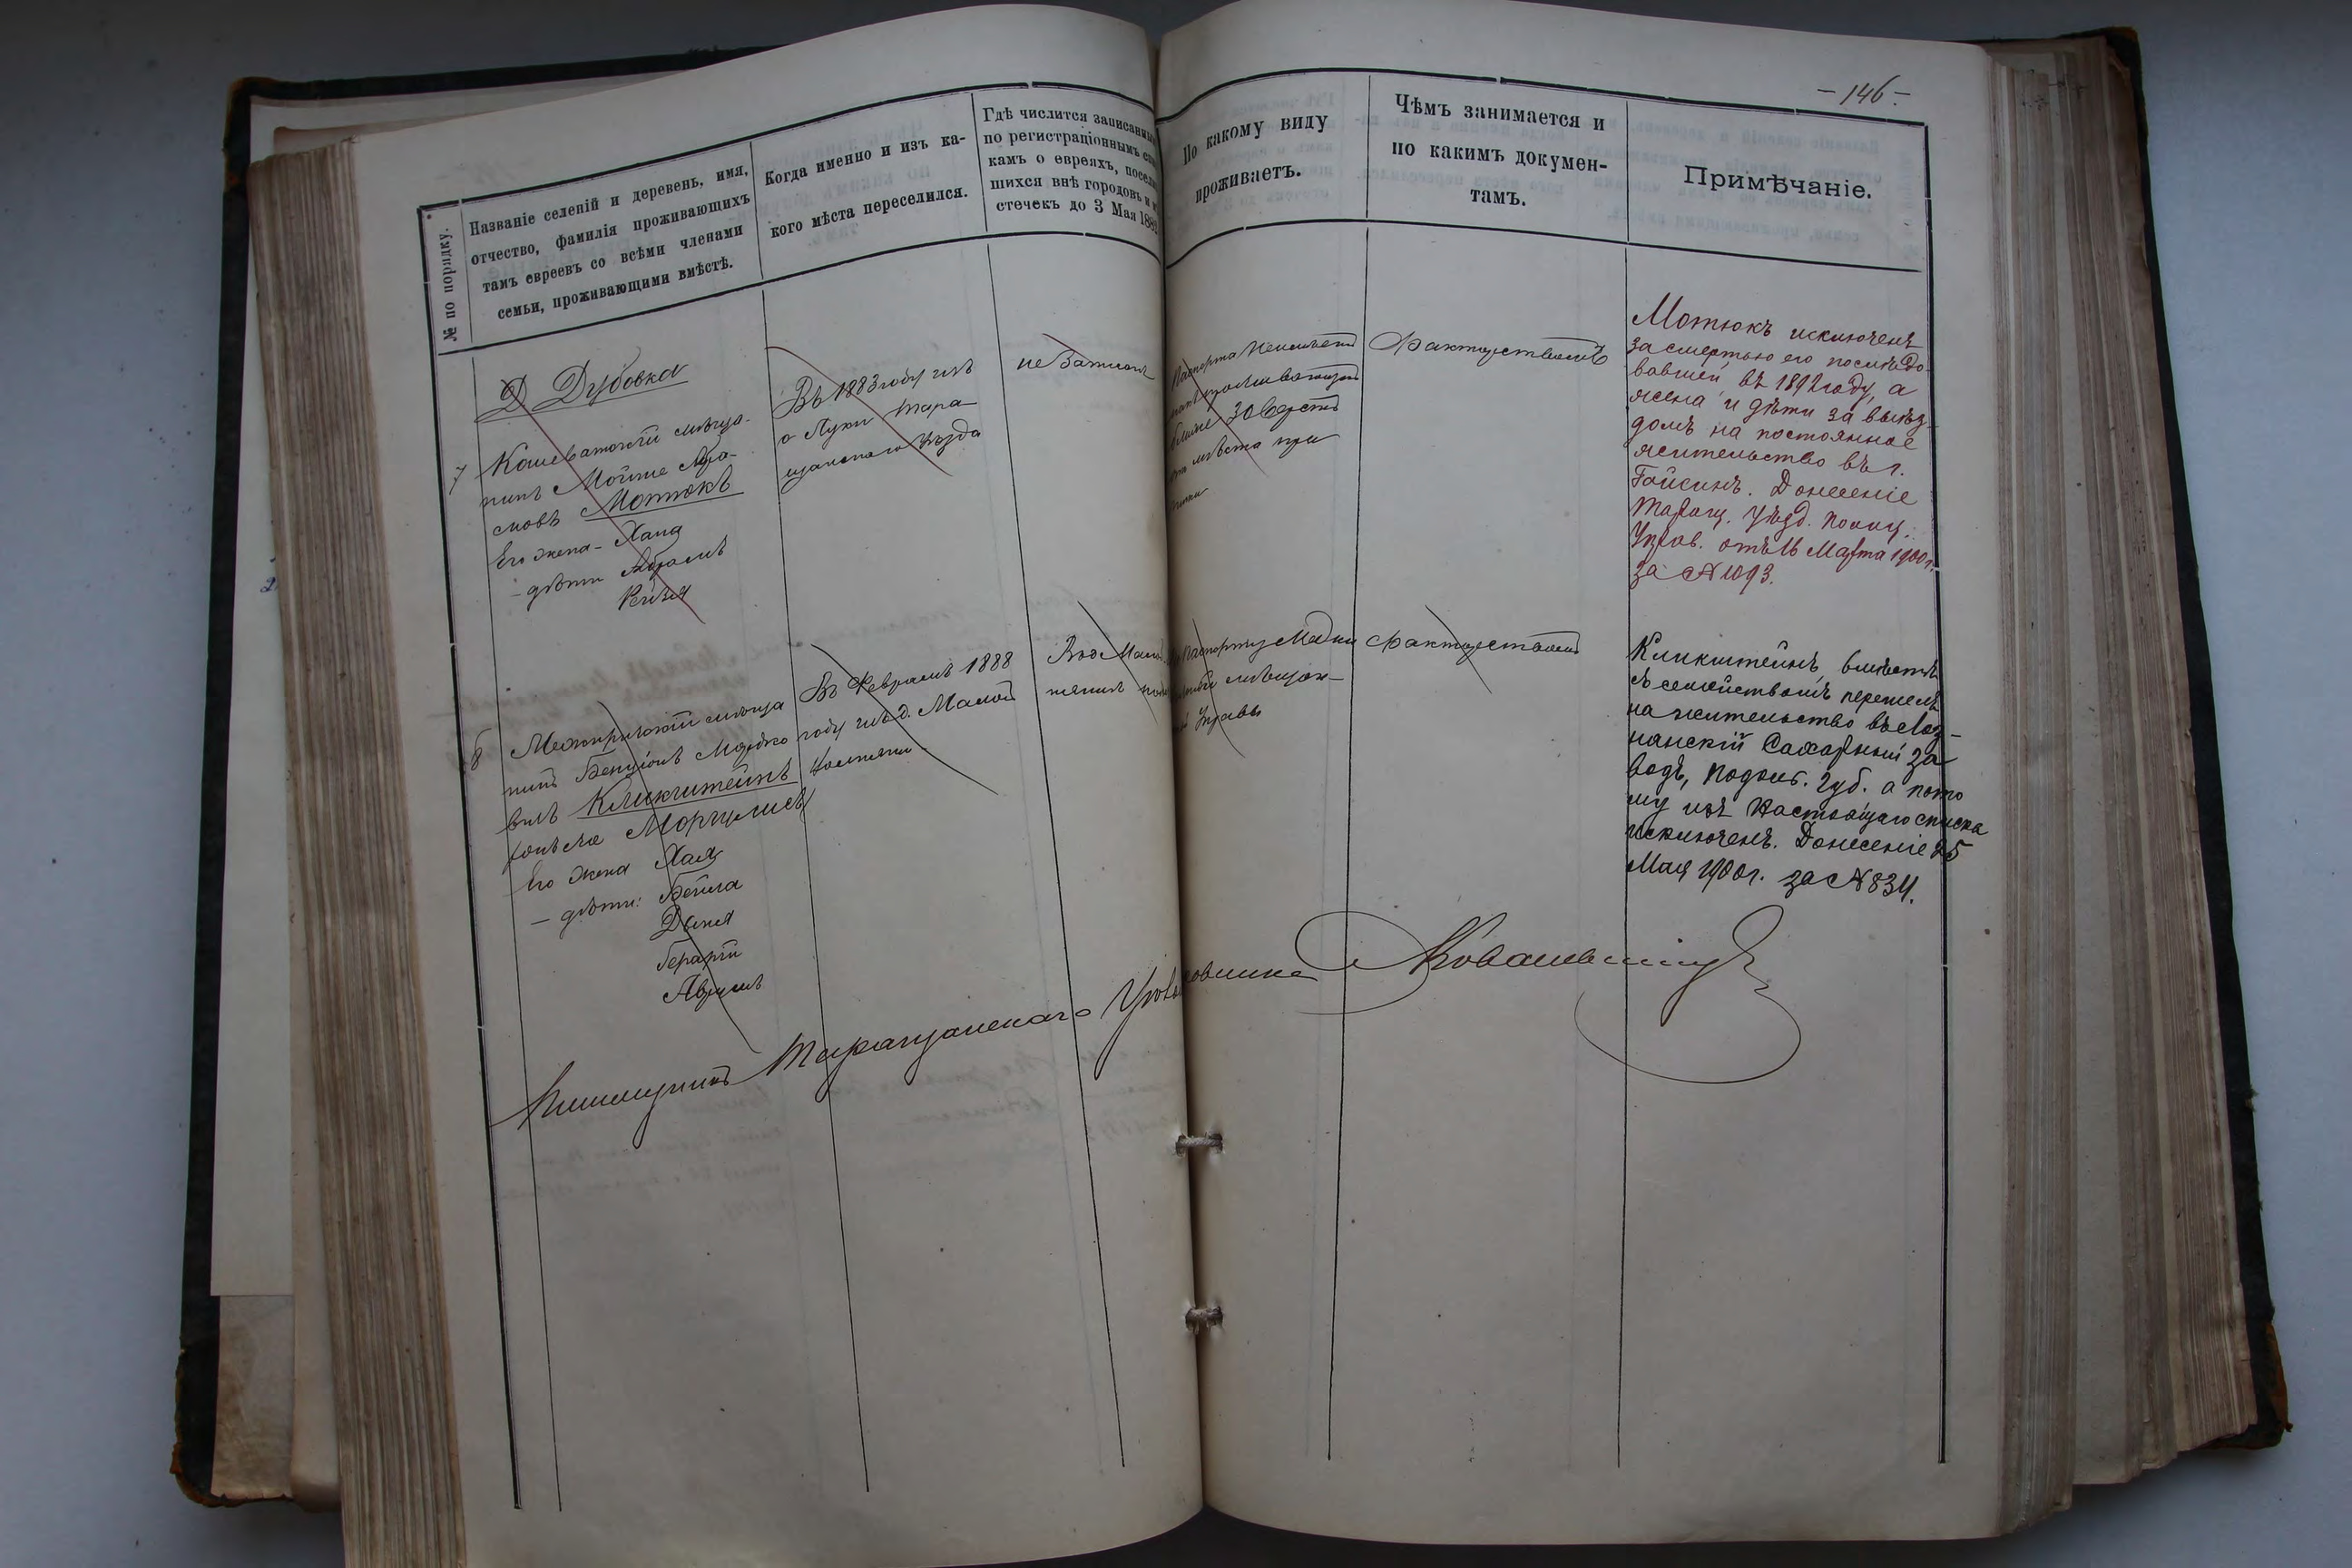 - 146 -
№ по порядку.
Названіе селеній и деревень, имя,
отчество, фамилія проживающихъ
тамъ евреевъ со всѣми членами
семьи, проживающими вмѣстѣ.
Когда именно и изъ ка-
кого мѣста переселился.
Гдѣ числится записанны
по регистраціоннымъ спи
камъ о евреяхъ, посели
шихся внѣ городовъ и м
стечекъ до 3 Мая 1882
По какому виду
проживаетъ.
Чѣмъ занимается и
по какимъ докумен-
тамъ.
Примѣчаніе.
Д. Дубовка
7 Кошеватскій мѣща-
нинъ Мойше Абра-
мовъ Мотюкъ
Его жена - Хана
- дѣти Абрамъ
Рейзя
Въ 1883 году изъ
с. Луки Тара
щанскаго уѣзда
не записанъ
Паспорта
30 верстъ
мѣста при
Факторствомъ
Мотюкъ исключенъ
за смертью его послѣдо-
вавшей въ 1892 году, а
жена и дѣти за выѣз-
домъ на постоянное
жительство въ г.
Гайсинъ. Донесеніе
Таращ. Уѣзд. Полиц.
Управ. отъ 16 Марта 1900 г.
за № 1093.
8 Межирицкій мѣща
нинъ Бенціонъ Мордко
вичъ Кликштейнъ
онъ же Моргулисъ
Его жена Хая
- дѣти: Бейла
Двися
Авруmъ
Въ Февралѣ 1888
году изъ д. Малой
Паспорту
мѣщан-
Управы
Факторствомъ
Кликштейнъ вмѣстѣ
съ семействомъ перешелъ
на жительство въ
Сахарный за
водъ, Подол. губ. а пото
му изъ настоящаго списка
исключенъ. Донесеніе 25
Мая 1900 г. за № 834.
Таращанскаго